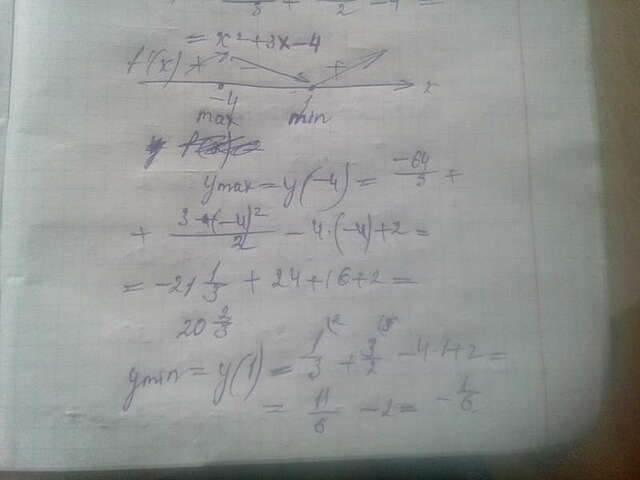 3 + 2 - 4 =
= x² + 3x - 4
f'(x) + - + x
-4 1
max min
y max = y(-4) = -64/3 +
+ 3·(-4)²/2 - 4·(-4) + 2 =
= -21 1/3 + 24 + 16 + 2 =
20 2/3
y min = y(1) = 1/3 + 3/2 - 4·1 + 2 =
= 11/6 - 2 = -1/6